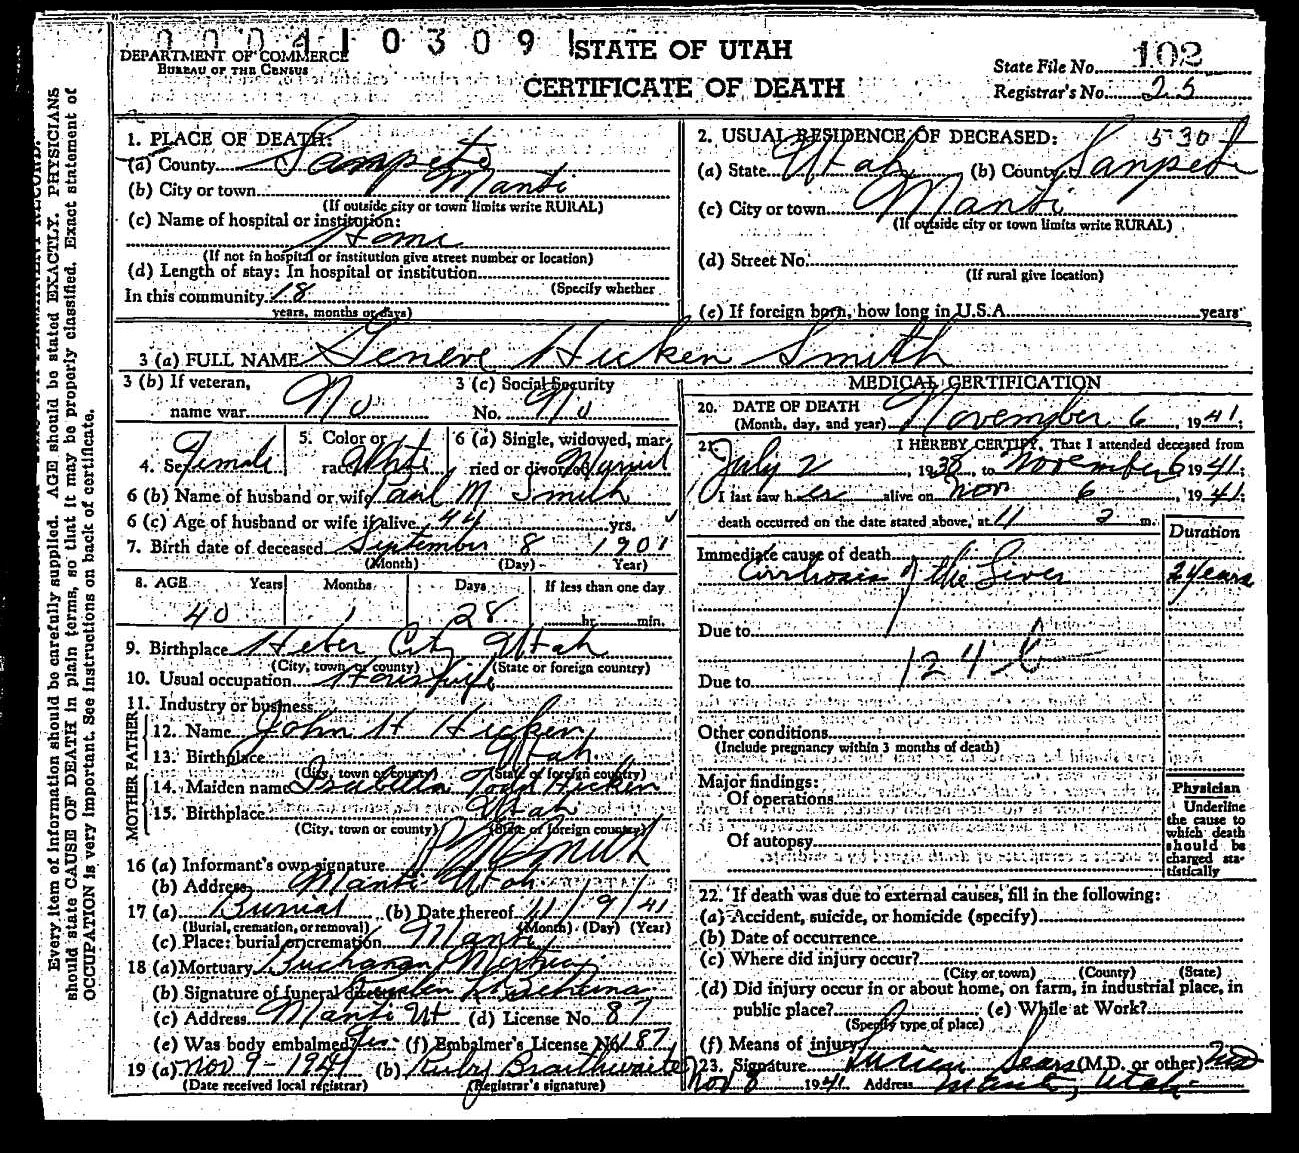 00041 0309
DEPARTMENT OF COMMERCE
BUREAU OF THE CENSUS
STATE OF UTAH
CERTIFICATE OF DEATH
State File No. 102
Registrar's No. 25
Every item of information should be carefully supplied. AGE should be stated EXACTLY. PHYSICIANS
should state CAUSE OF DEATH in plain terms, so that it may be properly classified. Exact statement of
OCCUPATION is very important. See instructions on back of certificate.
1. PLACE OF DEATH:
(a) County Sanpete
(b) City or town Manti
(If outside city or town limits write RURAL)
(c) Name of hospital or institution:
Home
(If not in hospital or institution give street number or location)
(d) Length of stay: In hospital or institution
(Specify whether
In this community 18
years, months or days)
2. USUAL RESIDENCE OF DECEASED: 530
(a) State Utah (b) County Sanpete
(c) City or town Manti
(If outside city or town limits write RURAL)
(d) Street No.
(If rural give location)
(e) If foreign born, how long in U.S.A. years
3 (a) FULL NAME Geneve Hicken Smith
3 (b) If veteran,
name war No
3 (c) Social Security
No. No
4. Sex Female
5. Color or
race White
6 (a) Single, widowed, mar-
ried or divorced Married
6 (b) Name of husband or wife Paul M Smith
6 (c) Age of husband or wife if alive 44 yrs.
7. Birth date of deceased September 8 1901
(Month) (Day) Year)
8. AGE Years Months Days If less than one day
40 1 28 hr. min.
9. Birthplace Heber City Utah
(City, town or county) (State or foreign country)
10. Usual occupation Housewife
11. Industry or business
FATHER
12. Name John H Hicken
13. Birthplace Utah
(City, town or county) (State or foreign country)
MOTHER
14. Maiden name Isabella Todd Hicken
15. Birthplace Utah
(City, town or county) (State or foreign country)
16 (a) Informant's own signature P M Smith
(b) Address Manti Utah
17 (a) Burial (b) Date thereof 11/9/41
(Burial, cremation, or removal) (Month) (Day) (Year)
(c) Place: burial or cremation Manti
18 (a) Mortuary Buchanan Mortuary
(b) Signature of funeral director
(c) Address Manti Ut (d) License No. 87
(e) Was body embalmed? Yes (f) Embalmer's License No. 187
19 (a) Nov 9 - 1941 (b) Ruby Braithwaite
(Date received local registrar) (Registrar's signature)
MEDICAL CERTIFICATION
20. DATE OF DEATH
(Month, day, and year) November 6, 1941
21. I HEREBY CERTIFY, That I attended deceased from
July 2, 1938, to November 6 1941;
I last saw her alive on Nov 6, 1941;
death occurred on the date stated above, at 11 a m.
Duration
Immediate cause of death
Cirrhosis of the Liver 2 years
Due to
124 b
Due to
Other conditions
(Include pregnancy within 3 months of death)
Major findings:
Of operations
Of autopsy
Physician
Underline
the cause to
which death
should be
charged sta-
tistically
22. If death was due to external causes, fill in the following:
(a) Accident, suicide, or homicide (specify)
(b) Date of occurrence
(c) Where did injury occur?
(City or town) (County) (State)
(d) Did injury occur in or about home, on farm, in industrial place, in
public place? (e) While at Work?
(Specify type of place)
(f) Means of injury
23. Signature Lucien Sears (M.D. or other) MD
Nov 8 1941 Address Manti, Utah